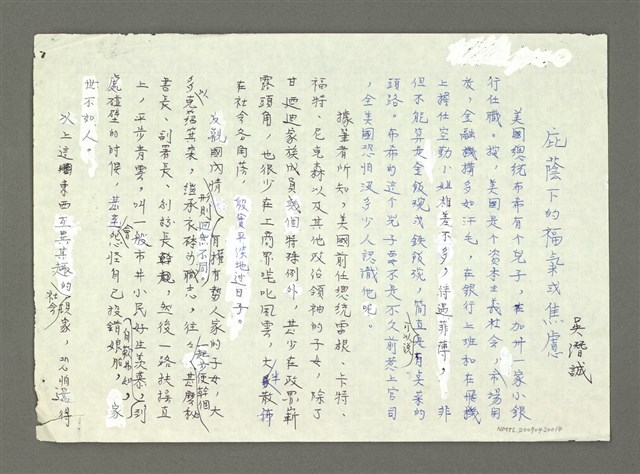 庇蔭下的福氣或焦慮
吳潛誠
美國總統布希有個兒子,在加州一家小銀
行任職。按,美國是個資本主義社會,市場開
放,金融機構多如汗毛,在銀行上班和在飛機
上擔任空勤小姐相差不多,待遇菲薄,非
但不能算是金飯碗或鐵飯碗,簡直可以說是美差的
頭路。布希的這個兒子要不是不久前惹上官司
,全美國恐怕沒多少人認識他呢。
據筆者所知,美國前任總統雷根、卡特、
福特、尼克森以及其他政治領袖的子女,除了
甘迺迪家族成員幾個特殊例外,甚少在政界嶄
露頭角,也很少在工商界叱吒風雲,大半散佈
在社會各角落,殷實平淡地過日子。
反觀國內情形則迥然不同。有權有勢人家的子女,大
多克紹箕裘,繼承衣缽或職志,往往一起步便幹個甚麼秘
書長、副署長、副部長幹起,然後一路扶搖直
上,平步青雲,叫一般市井小民好生羨慕,到
處碰壁的時候,甚至會怨怪自己投錯娘胎,自歎為何家
世不如人。
以上這些東西互異其趣的社會現象,恐怕還得
NMTL 20090420014